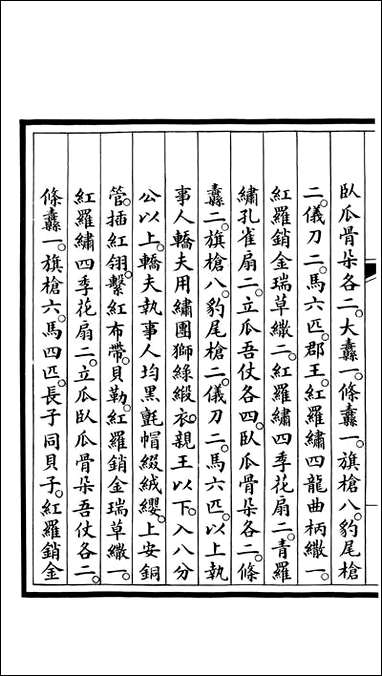 臥瓜骨朵各二。大纛一。條纛一。旗槍八。豹尾槍
二。儀刀二。馬六匹。郡王。紅羅繡四龍曲柄繖一。
紅羅銷金瑞草繖二。紅羅繡四季花扇二。青羅
繡孔雀扇二。立瓜吾仗各四。臥瓜骨朵各二。條
纛二。旗槍八。豹尾槍二。儀刀二。馬六匹。以上執
事人轎夫用繡團獅綠緞衣。親王以下。入八分
公以上。轎夫執事人均黑氈帽綴絨纓。上安銅
管。插紅翎。繫紅布帶。貝勒。紅羅銷金瑞草繖一。
紅羅繡四季花扇二。立瓜臥瓜骨朵吾仗各二。
條纛一。旗槍六。馬四匹。長子同貝子。紅羅銷金